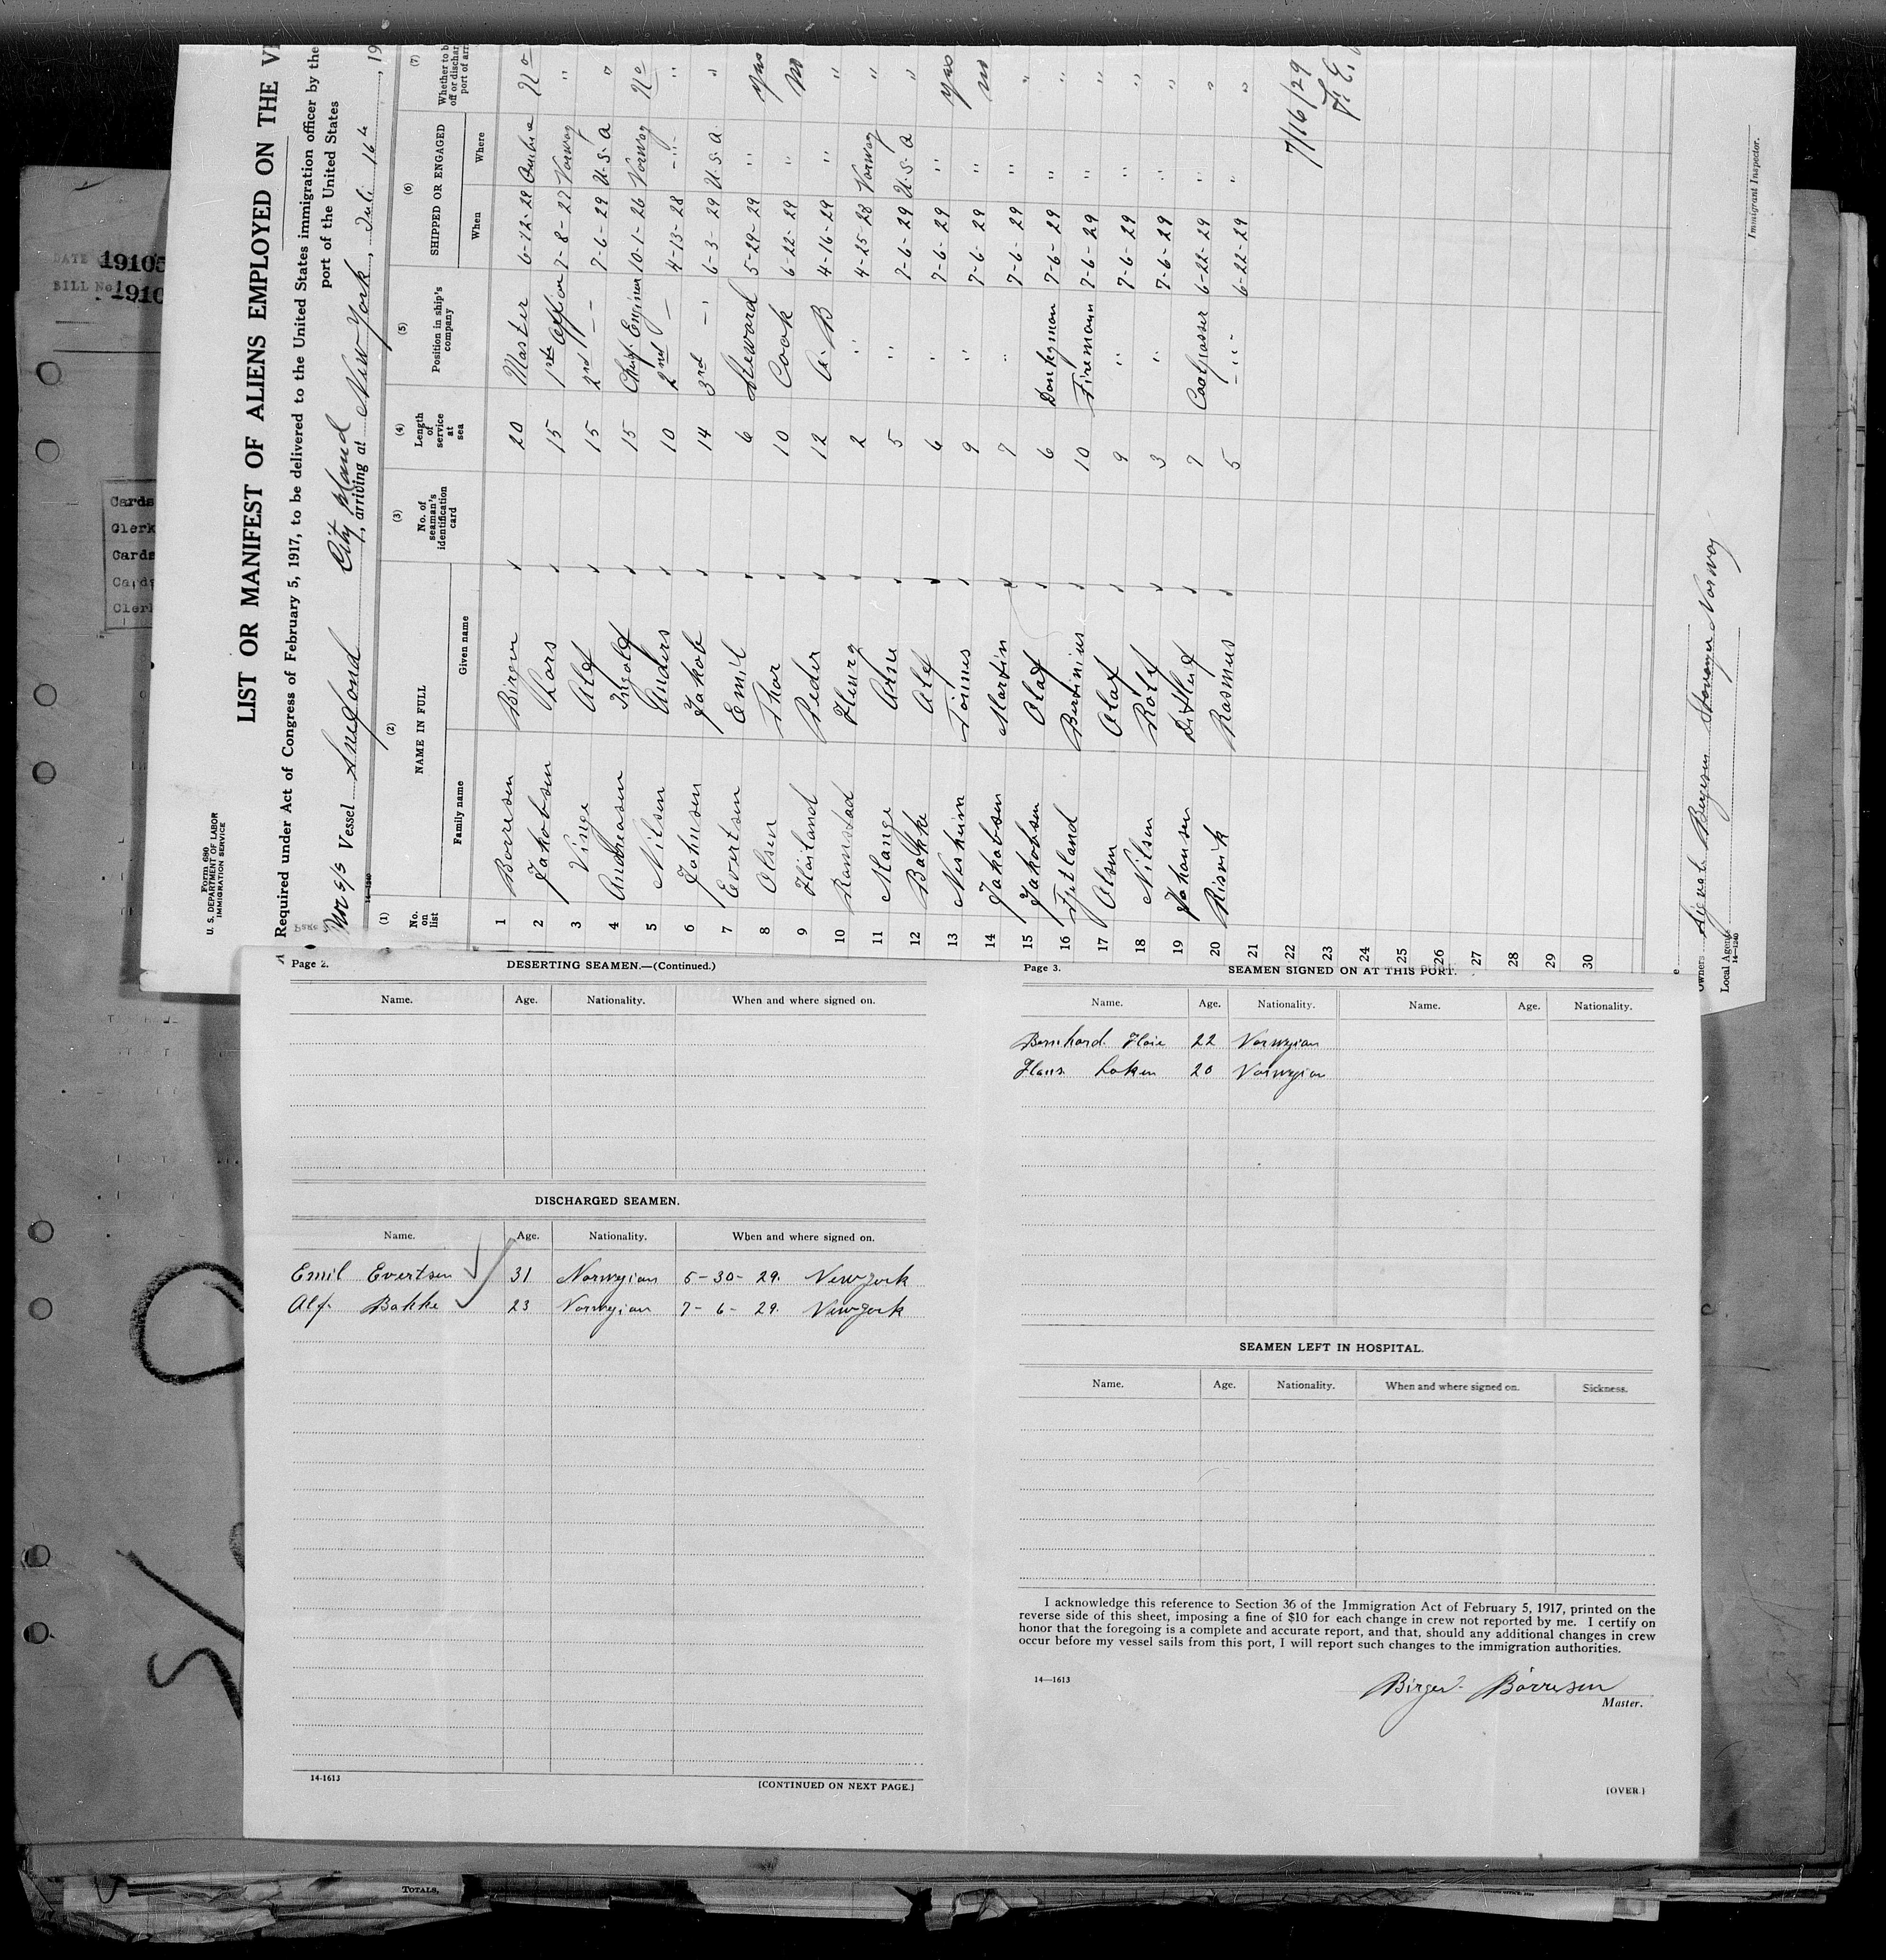 DATE 19105
BILL No. 1910
Cards
Clerk
Cards
Cards
Clerk
Form 680
U. S. DEPARTMENT OF LABOR
IMMIGRATION SERVICE
LIST OR MANIFEST OF ALIENS EMPLOYED ON THE
Required under Act of Congress of February 5, 1917, to be delivered to the United States immigration officer by the
port of the United States
Nor S/S Vessel Snefond City Island, arriving at New York, Juli 16th, 19
(1) (2) (3) (4) (5) (6) (7)
No. on list NAME IN FULL No. of seaman's identification card Length of service at sea Position in ship's company SHIPPED OR ENGAGED Whether to b
off or dischar
port of arr
Family name Given name When Where
1 Borresen Birger 20 Master 6-12-28 No
2 Jakobsen Lars 15 1ste Officer 7-8-27 Norway "
3 Vinge Alf 15 2nd -"- 7-6-29 U.S.A "
4 Andreasen Ingolf 15 Chief Enginer 10-1-26 Norway No
5 Nilsen Anders 10 2nd - 4-13-28 -"- "
6 Johnsen Jakob 14 3rd -"- 6-3-29 U.S.A. "
7 Evertsen Emil 6 Steward 5-29-29 " yes
8 Olsen Thor 10 Cook 6-22-29 " no
9 Høiland Peder 12 A.B 4-16-29 " "
10 Ramstad Henry 2 " 4-25-28 Norway "
11 Mange Arne 5 " 7-6-29 U.S.A "
12 Bakke Alf 6 " 7-6-29 " yes
13 Nesheim Tønnes 9 " 7-6-29 " no
14 Jakobsen Martin 7 " 7-6-29 " "
15 Jakobsen Olaf 6 Donkeyman 7-6-29 " "
16 Fjetland Bertinius 10 Firemann 7-6-29 " "
17 Olsen Olaf 9 " 7-6-29 " "
18 Nilsen Rolf 3 " 7-6-29 " "
19 Johansen Ditlef 7 Coalpasser 6-22-29 " "
20 Risvik Rasmus 5 -"- 6-22-29 " "
21
22 7/16/29
23
24
25
26
27
28
29
30
Owners Sigval Bergesen Stavanger Norway
Local Agents
14-1240
Immigrant Inspector.
Page 2. DESERTING SEAMEN.—(Continued.)
Name. Age. Nationality. When and where signed on.
DISCHARGED SEAMEN.
Name. Age. Nationality. When and where signed on.
Emil Evertsen 31 Norwegian 5-30-29. New york
Alf. Bakke 23 Norwegian 7-6-29. New york
14-1613 [CONTINUED ON NEXT PAGE.]
Page 3. SEAMEN SIGNED ON AT THIS PORT.
Name. Age. Nationality. Name. Age. Nationality.
Bernhard Hoie 22 Norwegian
Hans Loken 20 Norwegian
SEAMEN LEFT IN HOSPITAL.
Name. Age. Nationality. When and where signed on. Sickness.
I acknowledge this reference to Section 36 of the Immigration Act of February 5, 1917, printed on the
reverse side of this sheet, imposing a fine of $10 for each change in crew not reported by me. I certify on
honor that the foregoing is a complete and accurate report, and that, should any additional changes in crew
occur before my vessel sails from this port, I will report such changes to the immigration authorities.
14—1613
Birger Börresen
Master.
[OVER.]
TOTALS,